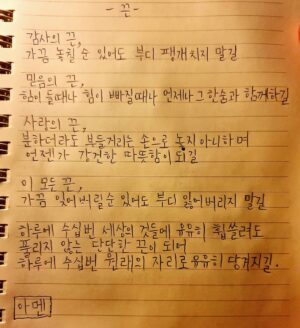 - 끈 -
감사의 끈,
가끔 놓칠 순 있어도 부디 팽개치지 말길
믿음의 끈,
힘이 들때나 힘이 빠질때나 언제나 그 한줌과 함께하길
사랑의 끈,
분하더라도 부들거리는 손으로 놓지 아니하며
언젠가 강건한 따뜻함이 되길
이 모든 끈,
가끔 잊어버릴 순 있어도 부디 잃어버리지 말길
하루에 수십번 세상의 것들에 유유히 휩쓸려도
풀리지 않는 단단한 끈이 되어
하루에 수십번 원래의 자리로 유유히 당겨지길.
아멘